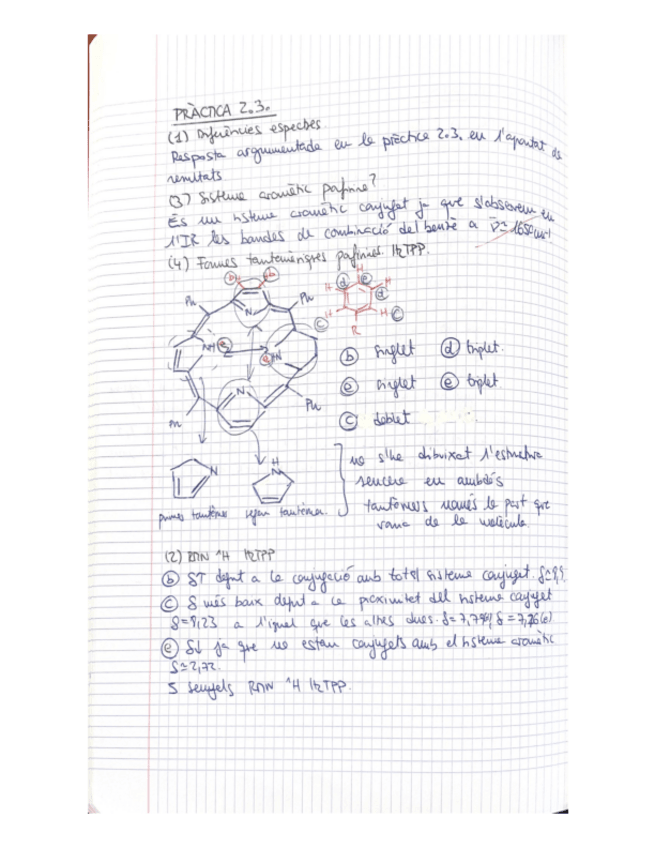 PRÀCTICA 2.3.
(1) Diferències espectres.
Resposta argumentada en la pràctica 2.3. en l'apartat de
resultats
(3) Sistema aromàtic porfina?
És un sistema aromàtic conjugat ja que s'observem en
l'IR les bandes de combinació del benzè a ν̄ = 1650 cm⁻¹
(4) Formes tautomèriques H₂TPP.
b b H d e H
Ph N Ph H d
NH e c H H c
e HN R
N
Ph Ph
b singlet d triplet.
e singlet e triplet
c doblet
N H N
no s'ha dibuixat l'estructura
sencera en ambdós
tautòmers només la part que
varia de la molècula.
primer tautòmer segon tautòmer
(2) RMN ¹H H₂TPP
b δ↑ degut a la conjugació amb tot el sistema conjugat.
c δ més baix degut a la proximitat del sistema conjugat
δ=8,23 a l'igual que les altres dues. δ=7,79 δ=7,26(e)
e δ↓ ja que no estan conjugats amb el sistema aromàtic
δ=2,72.
5 senyals RMN ¹H H₂TPP.